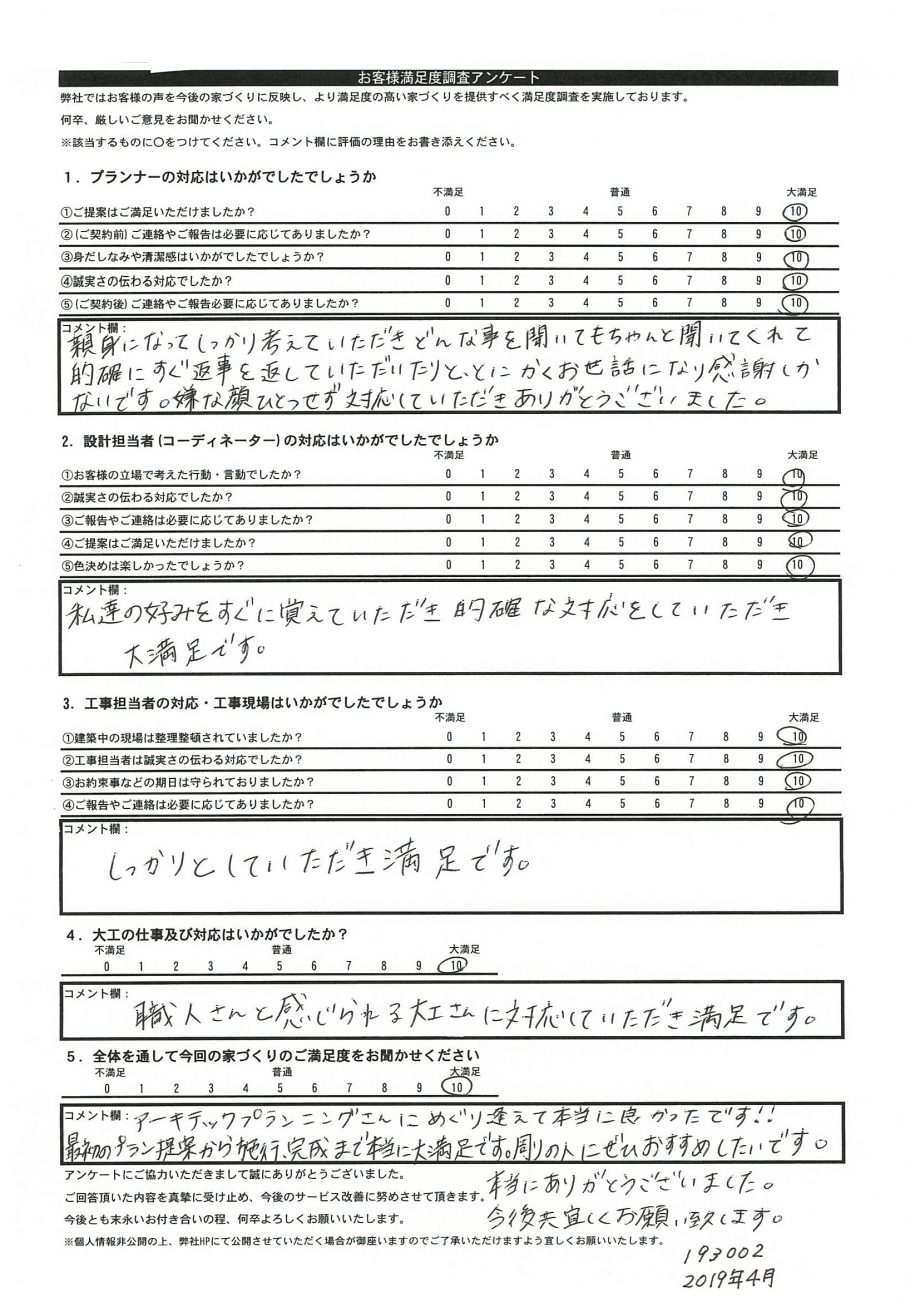 お客様満足度調査アンケート
弊社ではお客様の声を今後の家づくりに反映し、より満足度の高い家づくりを提供すべく満足度調査を実施しております。
何卒、厳しいご意見をお聞かせください。
※該当するものに〇をつけてください。コメント欄に評価の理由をお書き添えください。
1．プランナーの対応はいかがでしたでしょうか
不満足 普通 大満足
①ご提案はご満足いただけましたか？ 0 1 2 3 4 5 6 7 8 9 10
②(ご契約前)ご連絡やご報告は必要に応じてありましたか？ 0 1 2 3 4 5 6 7 8 9 10
③身だしなみや清潔感はいかがでしたでしょうか？ 0 1 2 3 4 5 6 7 8 9 10
④誠実さの伝わる対応でしたか？ 0 1 2 3 4 5 6 7 8 9 10
⑤(ご契約後)ご連絡やご報告必要に応じてありましたか？ 0 1 2 3 4 5 6 7 8 9 10
コメント欄：
親身になってしっかり考えていただきどんな事を聞いてもちゃんと聞いてくれて
的確にすぐ返事を返していただいたりと、とにかくお世話になり感謝しか
ないです。嫌な顔ひとつせず対応していただきありがとうございました。
2．設計担当者(コーディネーター)の対応はいかがでしたでしょうか
不満足 普通 大満足
①お客様の立場で考えた行動・言動でしたか？ 0 1 2 3 4 5 6 7 8 9 10
②誠実さの伝わる対応でしたか？ 0 1 2 3 4 5 6 7 8 9 10
③ご報告やご連絡は必要に応じてありましたか？ 0 1 2 3 4 5 6 7 8 9 10
④ご提案はご満足いただけましたか？ 0 1 2 3 4 5 6 7 8 9 10
⑤色決めは楽しかったでしょうか？ 0 1 2 3 4 5 6 7 8 9 10
コメント欄：
私達の好みをすぐに覚えていただき 的確な対応をしていただき
大満足です。
3．工事担当者の対応・工事現場はいかがでしたでしょうか
不満足 普通 大満足
①建築中の現場は整理整頓されていましたか？ 0 1 2 3 4 5 6 7 8 9 10
②工事担当者は誠実さの伝わる対応でしたか？ 0 1 2 3 4 5 6 7 8 9 10
③お約束事などの期日は守られておりましたか？ 0 1 2 3 4 5 6 7 8 9 10
④ご報告やご連絡は必要に応じてありましたか？ 0 1 2 3 4 5 6 7 8 9 10
コメント欄：
しっかりとしていただき満足です。
4．大工の仕事及び対応はいかがでしたか？
不満足 普通 大満足
0 1 2 3 4 5 6 7 8 9 10
コメント欄：
職人さんと感じられる大工さんに対応していただき満足です。
5．全体を通して今回の家づくりのご満足度をお聞かせください
不満足 普通 大満足
0 1 2 3 4 5 6 7 8 9 10
コメント欄：アーキテックプランニングさんにめぐり逢えて本当に良かったです!!
最初のプラン提案から施行、完成まで本当に大満足です。周りの人にぜひおすすめしたいです。
アンケートにご協力いただきまして誠にありがとうございました。
ご回答頂いた内容を真摯に受け止め、今後のサービス改善に努めさせて頂きます。
今後とも末永いお付き合いの程、何卒よろしくお願いいたします。
※個人情報非公開の上、弊社HPにて公開させていただく場合が御座いますのでご了承いただけますよう宜しくお願いいたします。
本当にありがとうございました。
今後共宜しくお願い致します。
193002
2019年4月